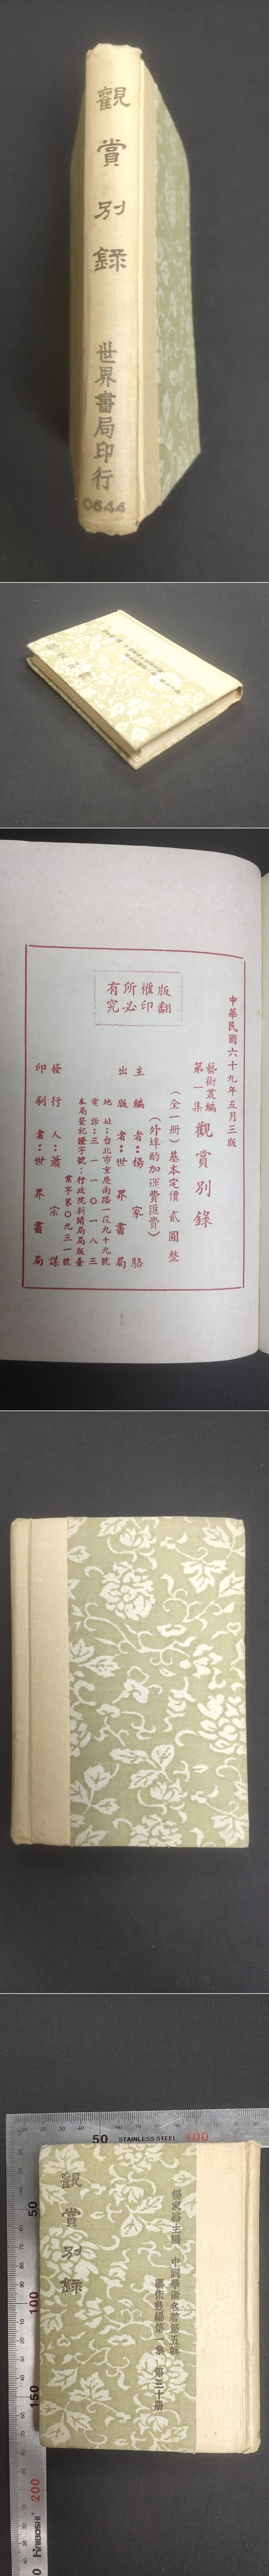 觀賞別錄
世界書局印行
0644
中華民國六十九年五月三版
藝術叢編
第一集
觀賞別錄
(全一册)基本定價 貳圓 整
(外埠酌加運費匯費)
主編者:楊家駱
出版者:世界書局
地址:台北市重慶南路一段九十九號
電話:三一一〇一八三
本局登記證字號:行政院新聞局局版臺
業字第〇九三一號
發行人:蕭宗謀
印刷者:世界書局
版權所有
翻印必究
50
STAINLESS STEEL
100
楊家駱主編 中國學術名著第五輯
藝術叢編第一集 第三十册
觀賞別錄
50
100
150
200